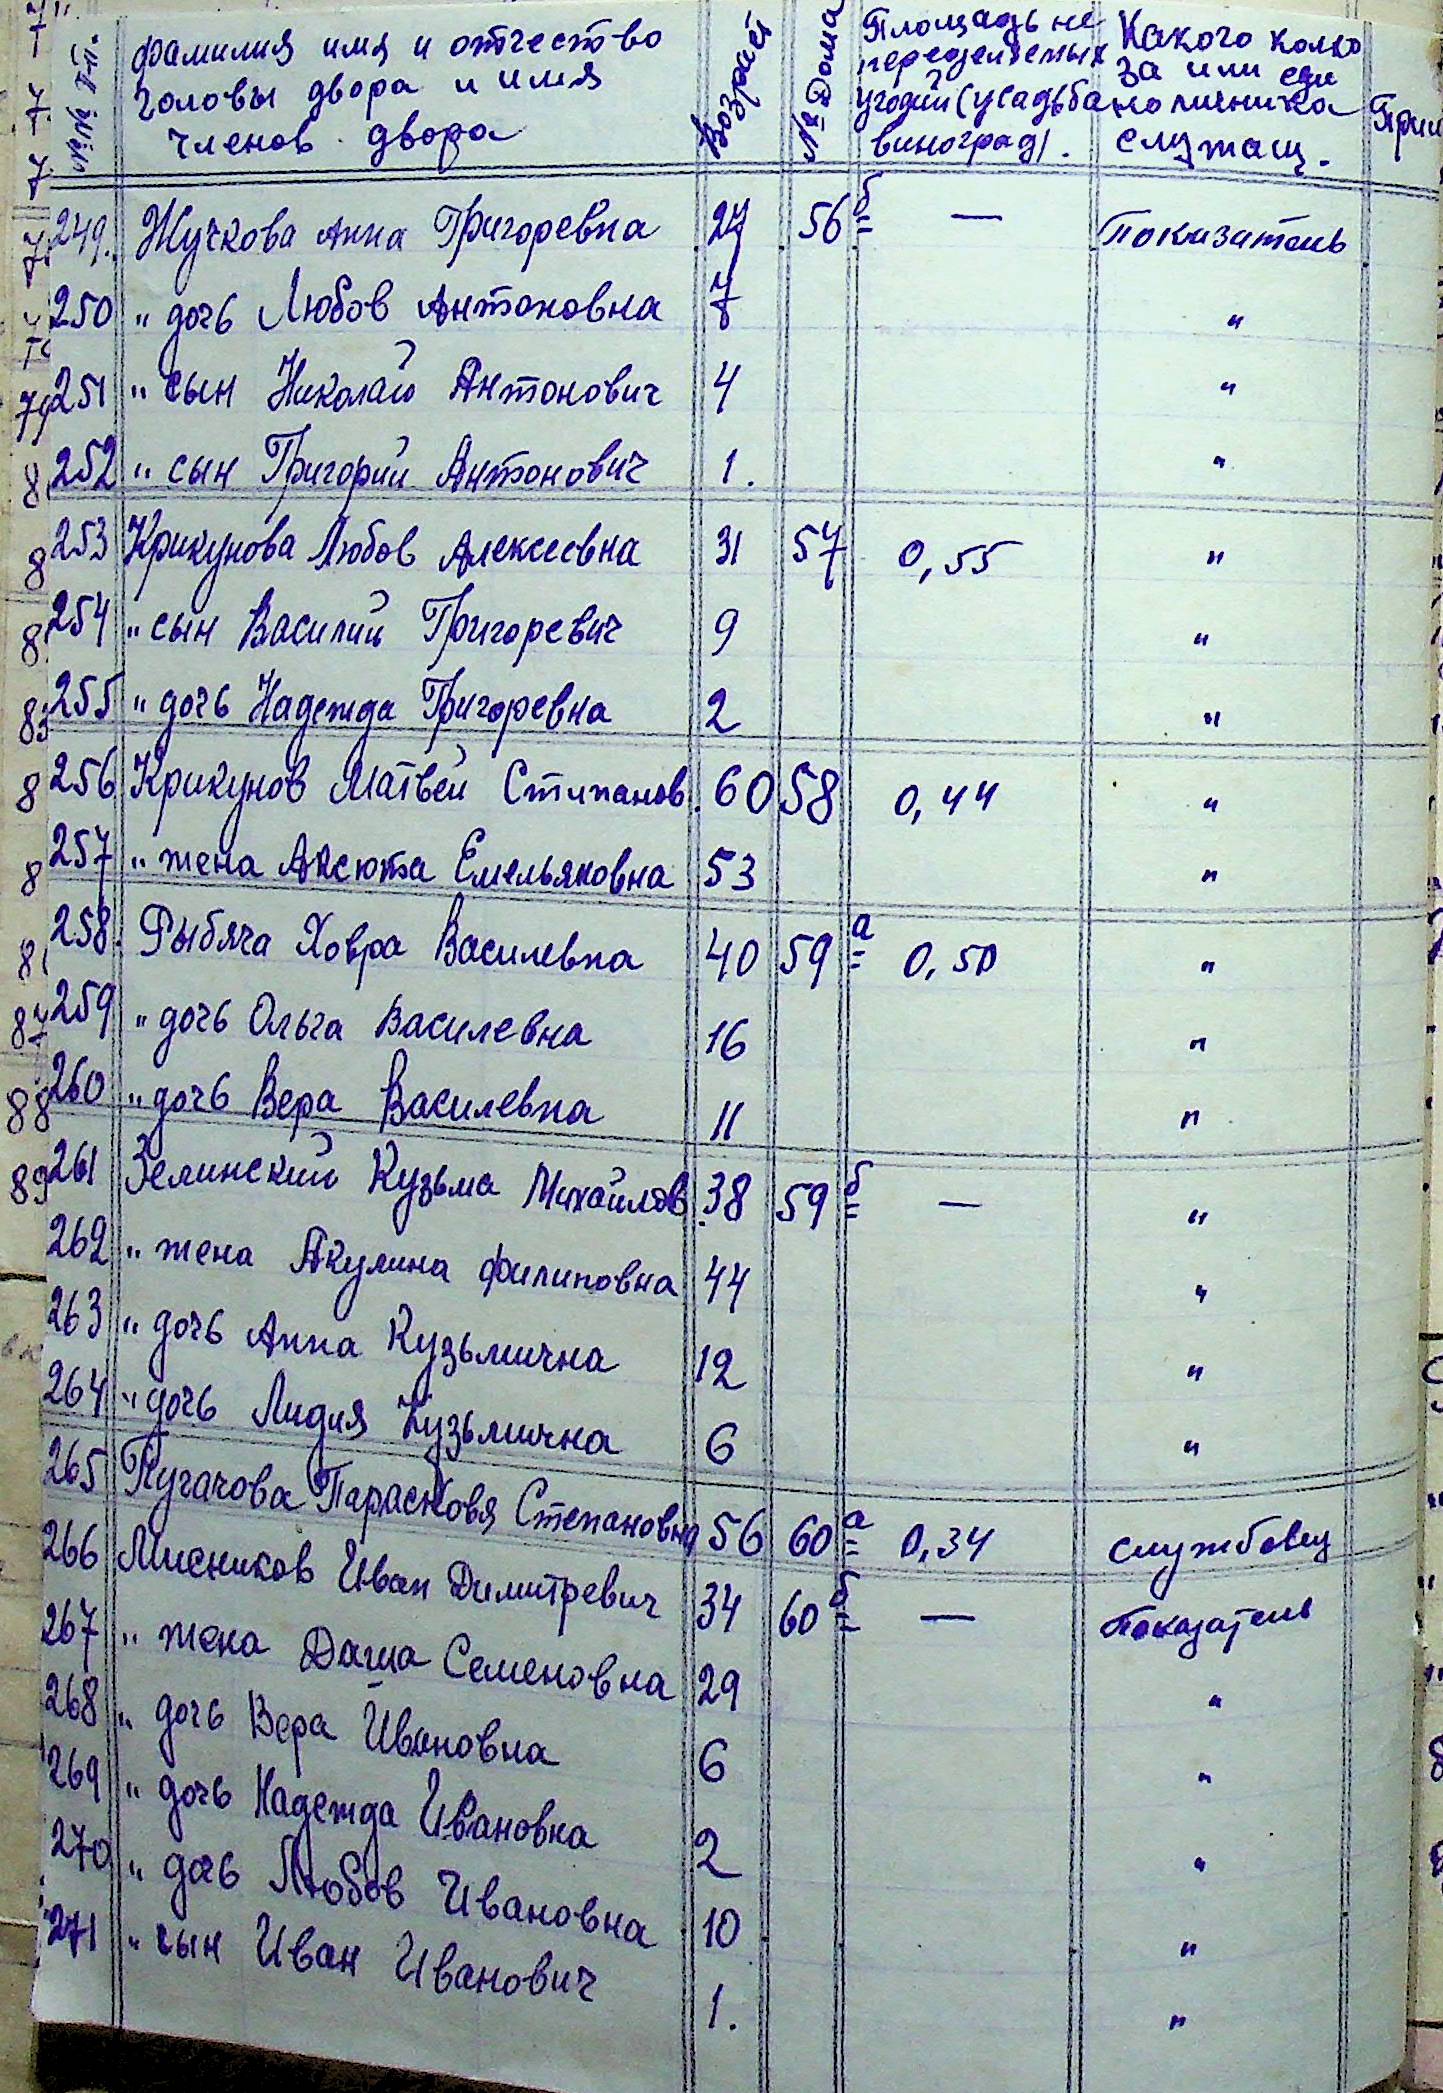 №№ п.п. Фамилия имя и отчество головы двора и имя членов двора Возраст № Дома Площадь не переделяемых угодий (усадьба, виноград). Какого колхоза или единоличника служащ. Прим
249. Жучкова Анна Григоревна 27 56 б —  Показатель
250 " дочь Любов Антоновна 7 "
251 " сын Николай Антонович 4 "
252 " сын Григорий Антонович 1. "
253 Крикунова Любов Алексеевна 31 57 0,55 "
254 " сын Василий Григоревич 9 "
255 " дочь Надежда Григоревна 2 "
256 Крикунов Матвей Стипанов. 60 58 0,44 "
257 " жена Аксюта Емельяновна 53 "
258. Рыбяча Ховра Василевна 40 59 а 0,50 "
259 " дочь Ольга Василевна 16 "
260 " дочь Вера Василевна 11 "
261 Зелинский Кузьма Михайлов. 38 59 б — "
262 " жена Акулина Филиповна 44 "
263 " дочь Анна Кузьмична 12 "
264 " дочь Лидия Кузьмична 6 "
265 Пугачова Парасковя Степановна 56 60 а 0,34 службовец
266 Мисников Иван Димитревич 34 60 б — Показатель
267 " жена Даша Семеновна 29 "
268 " дочь Вера Ивановна 6 "
269 " дочь Надежда Ивановна 2 "
270 " дочь Любов Ивановна 10 "
271 " сын Иван Иванович 1. "